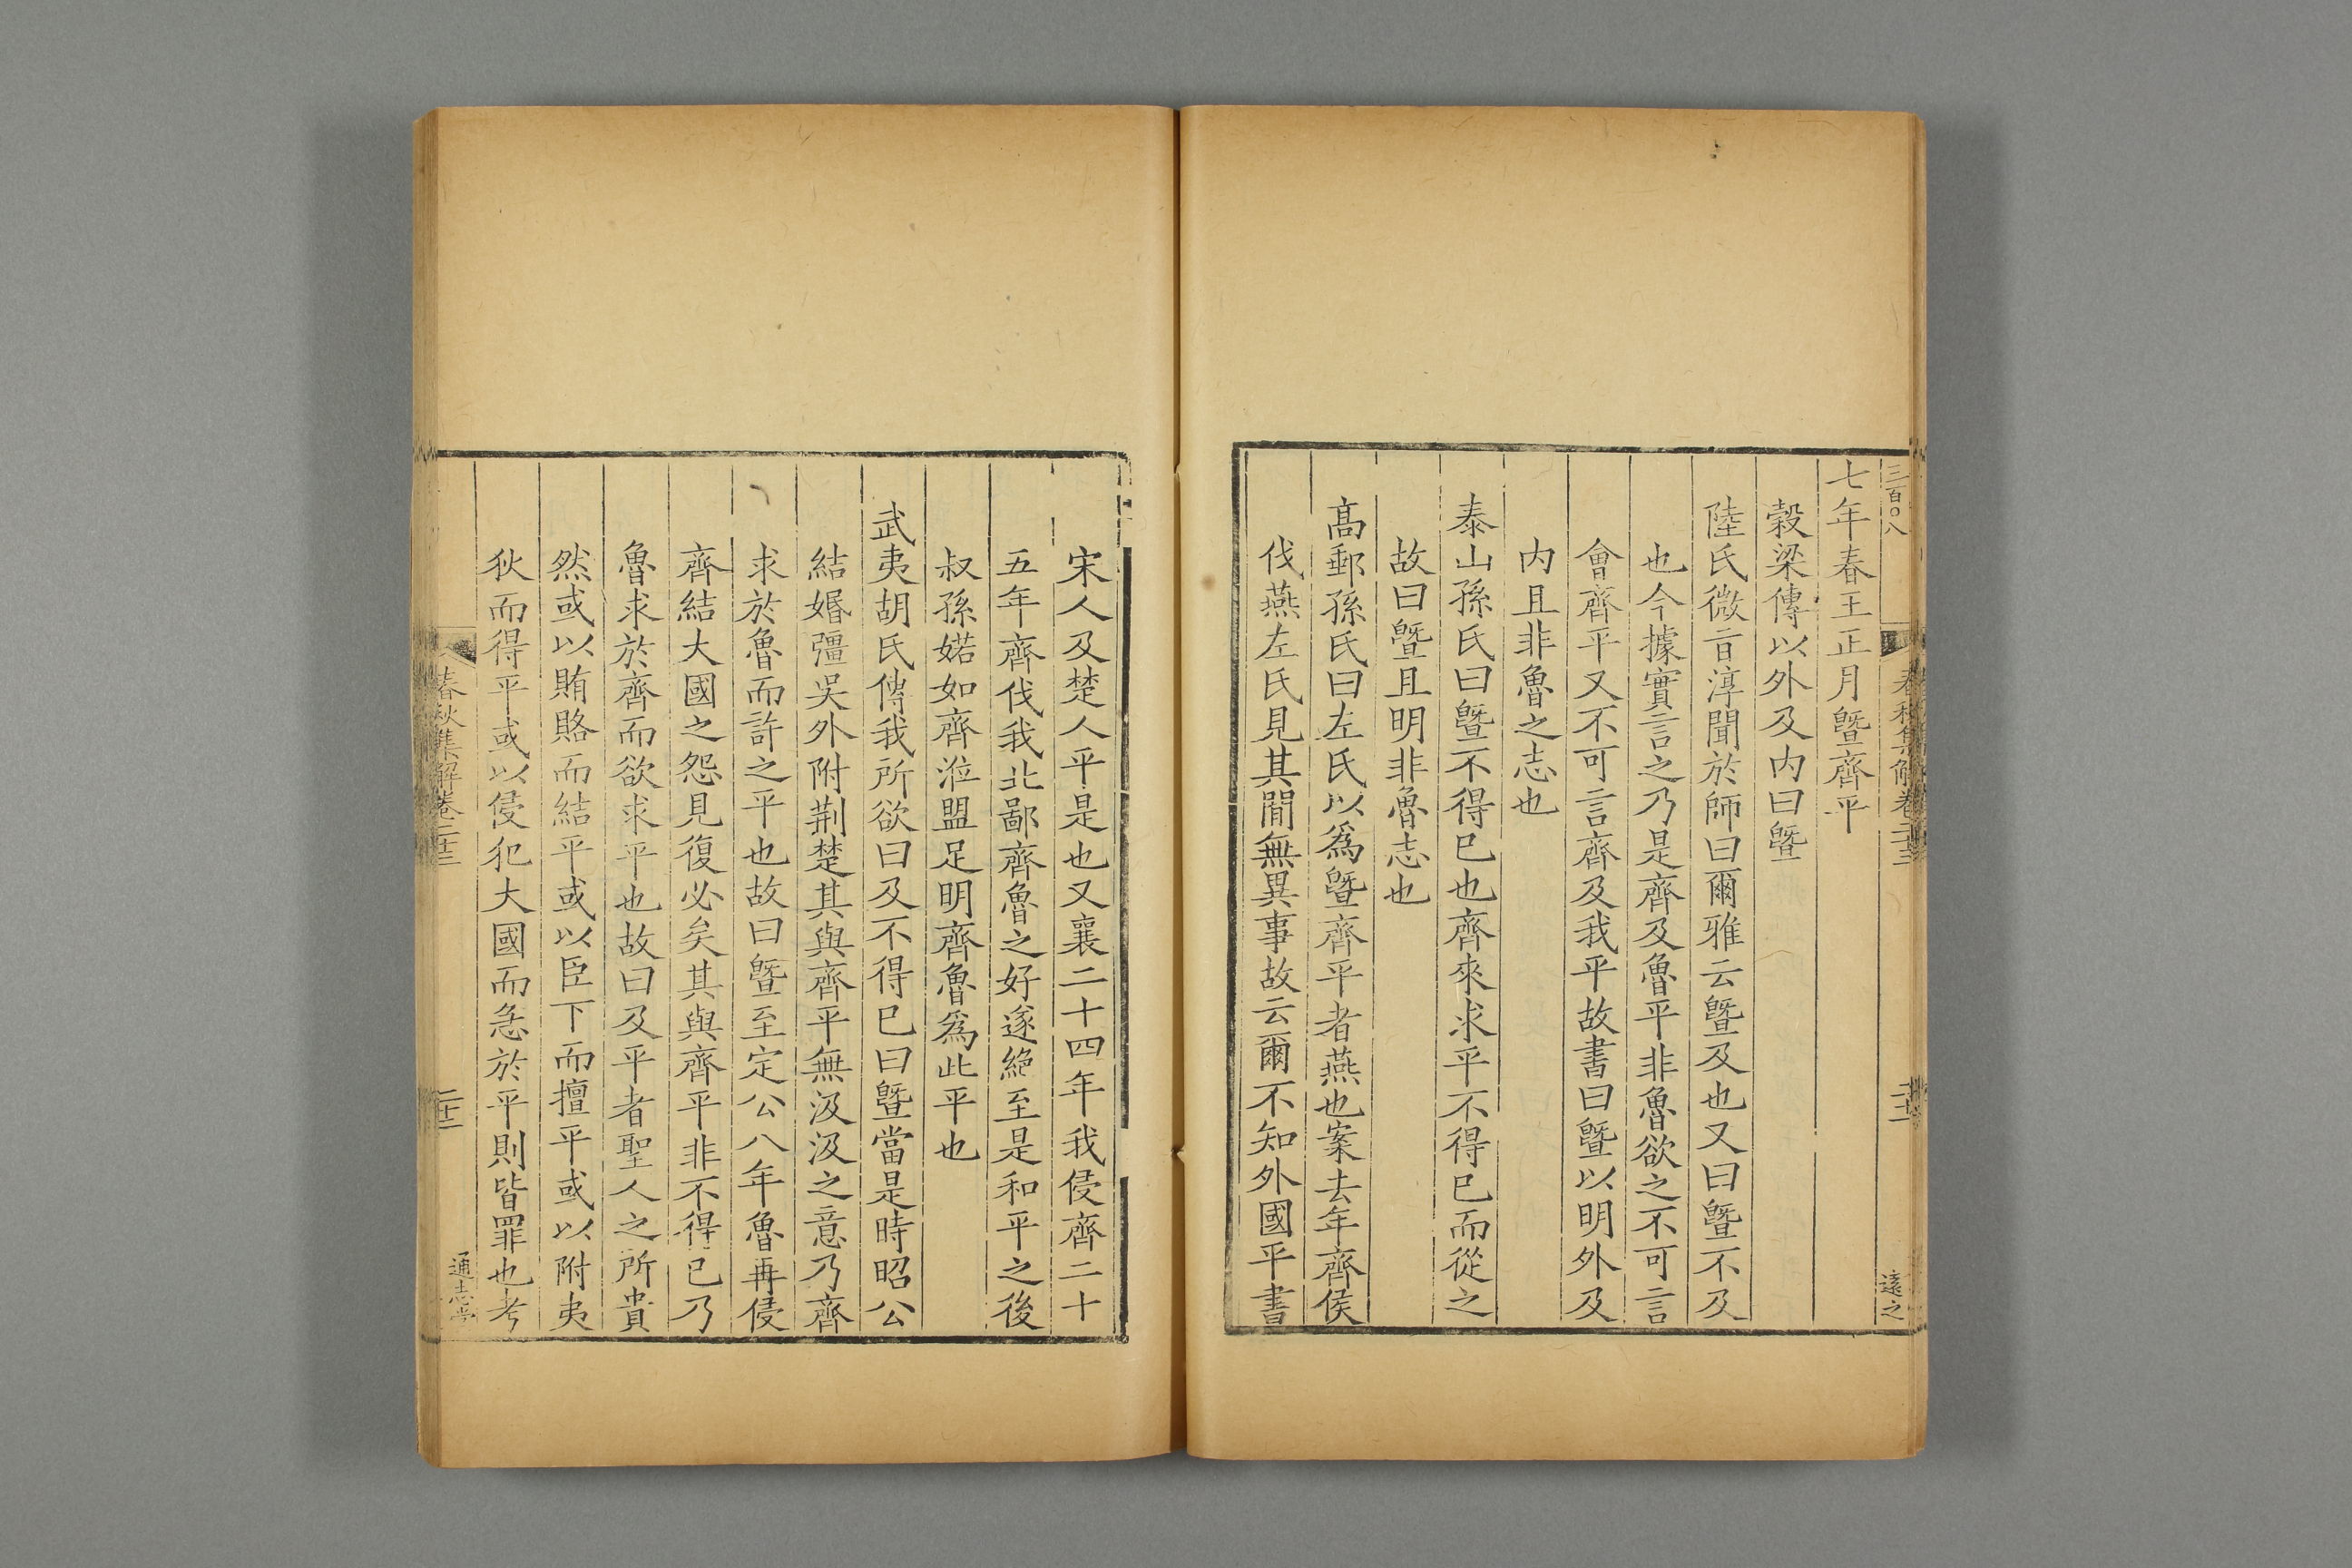 三百〇八
春秋集解卷二十三
二十二
遠之
七年春王正月暨齊平
穀梁傳以外及内曰暨
陸氏微㫖淳聞於師曰爾雅云暨及也又曰暨不及
也今據實言之乃是齊及魯平非魯欲之不可言
會齊平又不可言齊及我平故書曰暨以明外及
内且非魯之志也
泰山孫氏曰暨不得已也齊來求平不得已而從之
故曰暨且明非魯志也
高郵孫氏曰左氏以爲暨齊平者燕也案去年齊侯
伐燕左氏見其間無異事故云爾不知外國平書
宋人及楚人平是也又襄二十四年我侵齊二十
五年齊伐我北鄙齊魯之好遂絶至是和平之後
叔孫婼如齊涖盟足明齊魯爲此平也
武夷胡氏傳我所欲曰及不得已曰暨當是時昭公
結婚彊吳外附荆楚其與齊平無汲汲之意乃齊
求於魯而許之平也故曰暨至定公八年魯再侵
齊結大國之怨見復必矣其與齊平非不得已乃
魯求於齊而欲求平也故曰及平者聖人之所貴
然或以賄賂而結平或以臣下而擅平或以附夷
狄而得平或以侵犯大國而急於平則皆罪也考
春秋集解卷二十三
二十二
通志堂